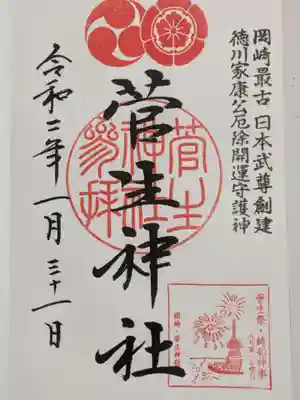 岡崎最古 日本武尊創建
徳川家康公厄除開運守護神
菅生神社
菅生神社参拝
令和二年一月三十一日
菅生祭・鉾船神事
岡崎・菅生神社